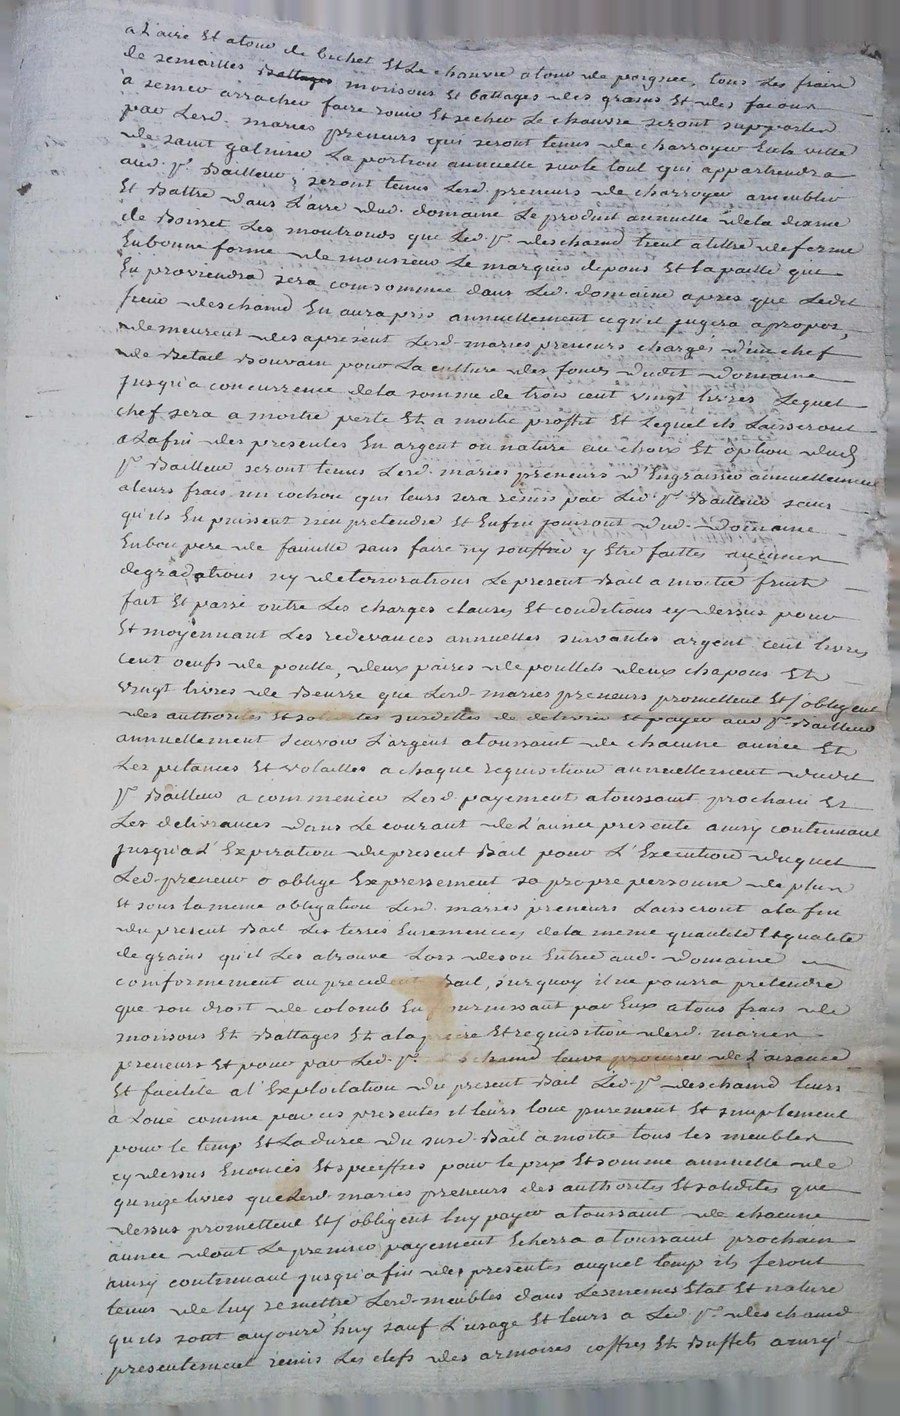 a L'aire Et atour de bichet Et Le chanvre atour de poignée, tous Les fraix
de semailles Battages moisons Et battages des grains Et des facons
a semer arracher faire rouir Et secher Le chanvre seront supportés
par Lesd. mariés preneurs qui seront tenus de charroyer En la ville
de saint galmier La portion annuelle sur le tout qui appartiendra
aud. sr. Bailleur; seront tenus Lesd. preneurs de charroyer ameubler
Et Battre dans L'aire dud. domaine Le produit annuelle de la dixme
de Boisset Les montronds que Led. sr. deschamd tient a titre de ferme
En bonne forme de monsieur Le marquis de pons Et la paille qui
En proviendra sera consommée dans Led. domaine apres que Ledit
sieur deschamd En aura pris annuellement ce qu'il jugera apropos,
demeurent des apresent Lesd. mariés preneurs chargés d'un chef
de Betail Bouvain pour La culture des fonds dudit domaine
jusqu'a concurrence de la somme de trois cent vingt livres Lequel
chef sera a moitié perte Et a moitié proffit Et Lequel ils Laisseront
a La fin des presentes En argent ou nature au choix Et option dud.
sr. Bailleur seront tenus Lesd. mariés preneurs d'Engraisser annuellement
a leurs frais un cochon qui leurs sera remis par Led. sr. Bailleur sans
qu'ils En puissent rien pretendre Et Enfin jouiront dud. domaine
En bon pere de famille sans faire ny souffrir y Etre faittes aucunes
degradations ny deteriorations Le present Bail a moitié fruits
fait Et passé outre Les charges clauses Et conditions cy dessus pour
Et moyennant Les redevances annuelles suivantes argent cent livres
cent oeufs de poulle, deux paires de poullets deux chapons Et
vingt livres de Beurre que Lesd. mariés preneurs promettent Et s'obligent
des authorités Et solidités susdittes de delivrer Et payer aud sr. Bailleur
annuellement scavoir L'argent a toussaint de chacune année Et
Les pitances Et volailles a chaque requisition annuellement dudit
sr. Bailleur a commencer Lesd. payement a toussaint prochain Et
Les delivrances dans Le courant de L'année presente ainsy continuant
jusqu'a L'Expiration du present Bail pour L'Execution duquel
Led. preneur o oblige Expressement sa propre personne de plus
Et sous la meme obligation Lesd. mariés preneurs Laisseront a la fin
du present Bail Les terres Ensemencées de la meme quantité Et qualité
de grains qu'il Les a trouvé Lors de son Entrée aud. domaine
conformement au precedent Bail, surquoy il ne pourra pretendre
que son droit de colomb En fournissant par Eux a tous frais de
moisons Et Battages Et a la Et requisition desd. mariés
preneurs Et pour par Led. sr. deschamd leurs procurer de L'aisance
Et facilité a l'Exploitation du present Bail Led. sr. deschamd leurs
a Loué comme par ces presentes il leurs loue purement Et simplement
pour le temp Et La durée du susd. Bail a moitié tous les meubles
cy dessus Enoncés Et speciffiés pour le prix Et somme annuelle de
quinze livres que Lesd. mariés preneurs des authorités Et solidités que
dessus promettent Et s'obligent luy payer a toussaint de chacune
année dont Le premier payement Echerra a toussaint prochain
ainsy continuant jusqu'a fin des presentes auquel temp ils seront
tenus de luy remettre Lesd. meubles dans Les memes Etat Et nature
qu'ils sont aujourd'huy sauf L'usage Et leurs a Led. sr. deschamd
presentement remis Les clefs des armoires coffres Et Buffets ainsy